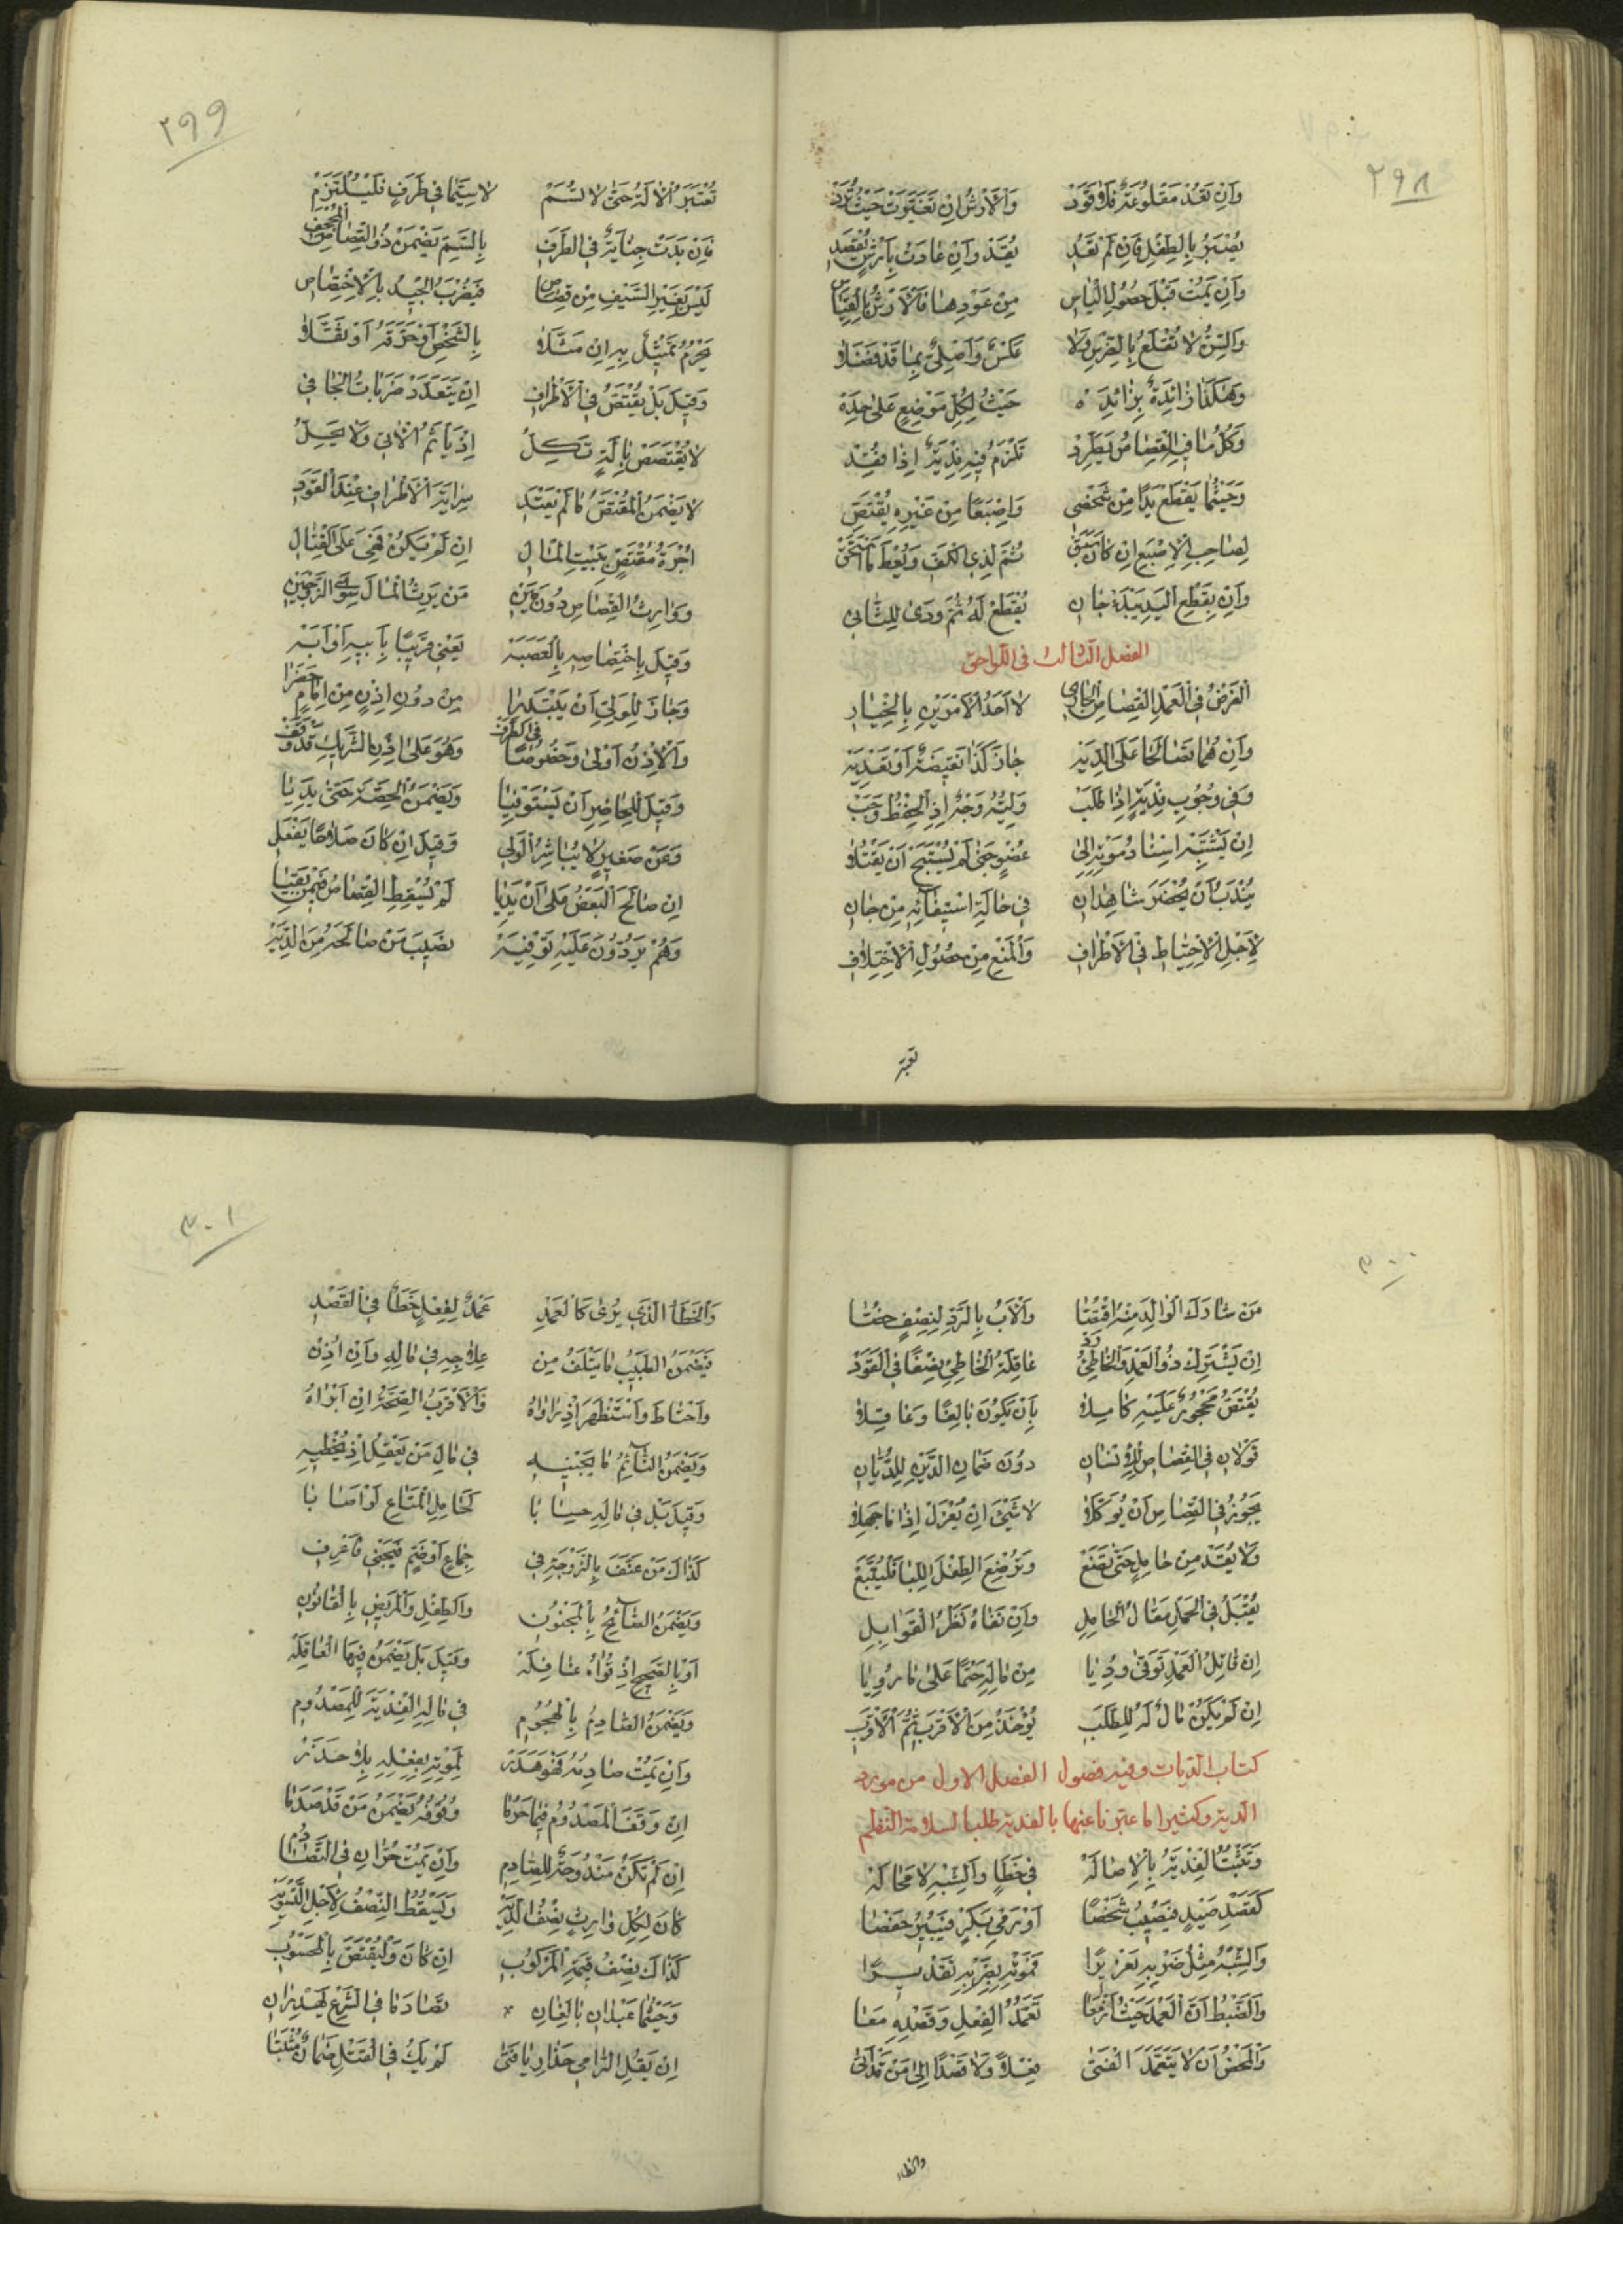 ٢٩٨
وَاِنْ تَعُدْ مَقْلُوعَةٌ فَلَا قَوَدْ وَالْاَرْشُ اِنْ تَغَيَّرَتْ حَيْثُ تُرَدْ
يُصْبَرُ بِالطِّفْلِ فَاِنْ لَمْ تَعُدِ يُقَدْ وَاِنْ عَادَتْ بِاَرْشٍ
وَاِنْ يَمُتْ قَبْلَ حُصُولِ الْيَاسِ مِنْ عَوْدِهَا فَالْاَرْشُ بِالْقِيَاسِ
وَالسِّنُّ لَا تُقْلَعُ بِالضِّرْسِ وَلَا عَكْسٌ وَاَصْلِيٌّ بِمَا قَدْ فَضَلَا
وَهٰكَذَا زَائِدَةٌ بِزَائِدَهْ حَيْثُ لِكُلٍّ مَوْضِعٍ عَلٰى حِدَهْ
وَكُلُّ مَا فِيهِ الْقِصَاصُ يَطَّرِدْ تَلْزَمُ فِيهِ فِدْيَةٌ اِذَا فُقِدْ
وَحَيْثُمَا يَقْطَعْ يَدًا مِنْ شَخْصِ وَاِصْبَعًا مِنْ غَيْرِهِ يُقْتَصِّ
لِصَاحِبِ الْاِصْبَعِ اِنْ كَانَ سَبَقْ ثُمَّ لِذِي الْكَفِّ وَيُعْطَ مَا اسْتَحَقْ
وَاِنْ بِقَطْعِ الْيَدِ يَبْدَءْ جَانِ يُقْطَعْ لَهُ ثُمَّ وَدٰى لِلثَّانِي
الفصل الثالث فى اللواحق
اَلْفَرْضُ فِي الْعَمْدِ الْقِصَاصُ الْجَارِي لَا اَحَدُ الْاَمْرَيْنِ بِالْخِيَارِ
وَاِنْ هُمَا تَصَالَحَا عَلَى الدِّيَهْ جَازَ كَذَا نَقِيصَةٌ اَوْ تَعْدِيَهْ
وَفِي وُجُوبِ فِدْيَةٍ اِذَا طَلَبْ وَلِيُّهُ وَجْهٌ اِذِ الْحِفْظُ وَجَبْ
اِنْ يَشْتَبِهْ اِسْنَادُ مَوْتِهِ اِلٰى عُضْوٍ جَنٰى لَمْ يُسْتَبَحْ اَنْ يُقْتَلَا
يُنْدَبُ اَنْ يُحْضَرَ شَاهِدَانِ فِي حَالَةِ اسْتِيفَائِهِ مِنْ جَانِ
لِاَجْلِ الْاِحْتِيَاطِ فِي الْاَطْرَافِ وَالْمَنْعِ مِنْ حُصُولِ الْاِخْتِلَافِ
تعتبر
٢٩٩
تُعْتَبَرُ الْاٰلَةُ حَتّٰى لَا تُسَمْ لَا سِيَّمَا فِي طَرَفٍ فَلْيُلْتَزَمْ
فَاِنْ بَدَتْ جِنَايَةٌ فِي الطَّرَفِ بِالسَّمِّ يَضْمَنْ ذُو الْقِصَاصِ الْمُجْحِفِ
لَيْسَ بِغَيْرِ السَّيْفِ مِنْ قِصَاصِ فَيَضْرِبُ الْجِيدَ بِالْاِخْتِصَاصِ
يَحْرُمُ تَمْثِيلٌ بِهِ اِنْ مَثَّلَا بِالشَّخْصِ اَوْ حَرَّقَهُ اَوْ ثَقَّلَا
وَقِيلَ بَلْ يُقْتَصُّ فِي الْاَطْرَافِ اِنْ يَتَعَدَّدْ ضَرَبَاتُ الْجَافِي
لَا يُقْتَصَصْ بِاٰلَةٍ تَكِلُّ اِذْ يَاْثَمُ الْاٰتِي وَلَا يَحِلُّ
لَا يَضْمَنُ الْمُقْتَصُّ مَا لَمْ يَعْتَدِ سِرَايَةَ الْاَطْرَافِ عِنْدَ الْقَوَدِ
اُجْرَةُ مُقْتَصٍّ بِبَيْتِ الْمَالِ اِنْ لَمْ يَكُنْ فَهْيَ عَلَى الْقَتَّالِ
وَوَارِثُ الْقِصَاصِ دُونَ مَيْنِ مَنْ يَرِثُ الْمَالَ سِوَى الزَّوْجَيْنِ
وَقِيلَ بِاخْتِصَاصِهِ بِالْعَصَبَهْ يَعْنِي قَرِيبًا بِاَبِيهِ اَوْ اَبَهْ
وَجَازَ لِلْوَلِيِّ اَنْ يَبْتَدِرَا مِنْ دُونِ اِذْنٍ مِنْ اِمَامٍ حَضَرَا
وَالْاِذْنُ اَوْلٰى وَخُصُوصًا فِي الطَّرَفْ وَهُوَ عَلٰى اِذْنِ الشَّرِيكِ قَدْ وَقَفْ
وَقِيلَ لِلْحَاضِرِ اَنْ يَسْتَوْفِيَا وَيَضْمَنُ الْحِصَّةَ حَتّٰى يَدِيَا
وَعَنْ صَغِيرٍ لَا يُبَاشِرُ الْوَلِي وَقِيلَ اِنْ كَانَ صَلَاحًا يَفْعَلِ
اِنْ صَالَحَ الْبَعْضُ عَلٰى اَنْ يَدِيَا لَمْ يُسْقِطِ الْقِصَاصَ فِيمَنْ بَقِيَا
وَهُمْ يَرُدُّونَ عَلَيْهِ تَوْفِيَهْ نَصِيبَ مَنْ صَالَحَهُ مِنَ الدِّيَهْ
٣٠٠
مَنْ شَارَكَ الْوَالِدَ مِنْهُ اقْتُصَّا وَالْاَبُ بِالرَّدِّ لِنِصْفٍ خُصَّا
اِنْ يَشْتَرِكْ ذُو الْعَمْدِ وَالْخَاطِئُ رَدْ عَاقِلَةُ الْخَاطِئِ نِصْفًا فِي الْقَوَدْ
يُقْتَصُّ مَحْجُورٌ عَلَيْهِ كَامِلَا بِاَنْ يَكُونَ بَالِغًا وَعَاقِلَا
قَوْلَانِ فِي الْقِصَاصِ لِلْاِنْسَانِ دُونَ ضَمَانِ الدَّيْنِ لِلدُّيَّانِ
يَجُوزُ فِي الْقِصَاصِ اَنْ يُوَكَّلَا لَا شَيْئَ اِنْ يُعْزَلْ اِذَا مَا جَهِلَا
وَلَا يُقَدْ مِنْ حَامِلٍ حَتّٰى تَضَعْ وَتُرْضِعَ الطِّفْلَ اللِّبَا فَلْيُتَّبَعْ
يُقْبَلُ فِي الْحَمْلِ مَقَالُ الْحَامِلِ وَاِنْ نَفَاهُ نَظَرُ الْقَوَابِلِ
اِنْ قَاتِلُ الْعَمْدِ تَوَفّٰى وُدِيَا مِنْ مَالِهِ حَتْمًا عَلٰى مَا رُوِيَا
اِنْ لَمْ يَكُنْ مَالٌ لَهُ لِلطَّلَبِ يُؤْخَذُ مِنَ الْاَقْرَبِ ثُمَّ الْاَقْرَبِ
كتاب الديات وفيه فصول الفصل الاول من مورد
الدية وكثيرا ما عبرنا عنها بالفدية طلبا لسلامة النظم
وَتَثْبُتُ الْفِدْيَةُ بِالْاِصَالَهْ فِي خَطَاٍ وَالشِّبْهِ لَا مَحَالَهْ
كَقَصْدِ صَيْدٍ فَيُصِيبُ شَخْصًا
وَالشِّبْهُ مِثْلُ ضَرْبِهِ تَعْزِيرًا
وَالضَّبْطُ اَنَّ الْعَمْدَ حَيْثُ اَزْمَعَا تَعَمُّدُ الْفِعْلِ وَقَصْدِهِ مَعَا
وَالْمَحْضُ اَنْ لَا يَتَعَمَّدَ الْفَتٰى فِعْلًا وَلَا قَصْدًا اِلٰى مَنْ قَدْ اَتٰى
والخطاء
٣٠١
وَالْخَطَأُ الَّذِي يُرٰى كَالْعَمْدِ عَمْدٌ لِفِعْلٍ خَطَأٌ فِي الْقَصْدِ
فَيَضْمَنُ الطَّبِيبُ مَا يَتْلَفُ مِنْ عِلَاجِهِ فِي مَالِهِ وَاِنْ اُذِنْ
وَاحْتَاطَ وَاسْتَظْهَرَ اِذْ دَاوَاهُ وَالْاَقْرَبُ الصِّحَّةُ اِنْ اَبْرَاهُ
وَيَضْمَنُ النَّائِمُ مَا يَجْنِيهِ فِي مَالِ مَنْ يَعْقِلُ اِذْ يُخْطِيهِ
وَقِيلَ بَلْ فِي مَالِهِ حِسَابَا كَحَامِلِ الْمَتَاعِ لَوْ اَصَابَا
كَذَاكَ مَنْ عَنَّفَ بِالزَّوْجَةِ فِي جِمَاعٍ اَوْ ضَمٍّ فَيَجْنِي فَاعْرِفِ
وَيَضْمَنُ الصَّائِحُ بِالْمَجْنُونِ وَالطِّفْلِ وَالْمَرِيضِ بِالْقَانُونِ
اَوْ بِالصَّحِيحِ اِذْ تُوَاهُ غَافِلَهْ وَقِيلَ بَلْ يَضْمَنُ فِيهَا الْعَاقِلَهْ
وَيَضْمَنُ الصَّادِمُ بِالْهُجُومِ فِي مَالِهِ الْفِدْيَةَ لِلْمَصْدُومِ
وَاِنْ يَمُتْ صَادِمُهُ فَهُوَ هَدَرْ لِمَوْتِهِ بِفِعْلِهِ بِلَا حَذَرْ
اِنْ وَقَفَ الْمَصْدُومُ فِيمَا حَرُمَا وُقُوفُهُ يَضْمَنُ مَنْ قَدْ صَدَمَا
اِنْ لَمْ تَكُنْ مَنْدُوحَةٌ لِلصَّادِمِ وَاِنْ يَمُتْ حُرَّانِ فِي التَّصَادُمِ
كَانَ لِكُلِّ وَارِثٍ نِصْفُ الدِّيَهْ وَيَسْقُطُ النِّصْفُ لِاَجْلِ التَّسْوِيَهْ
كَذَاكَ نِصْفُ قِيمَةِ الْمَرْكُوبِ اِنْ كَانَ وَلْيُقْتَصَّ بِالْمَحْسُوبِ
وَحَيْثُمَا عَبْدَانِ بَالِغَانِ تَصَادَمَا فِي الشَّرْعِ يُهْدَرَانِ
اِنْ يَقُلِ الرَّامِي حَذَارِ يَا فَتٰى لَمْ يَكُ فِي الْقَتْلِ ضَمَانٌ مُثْبَتَا